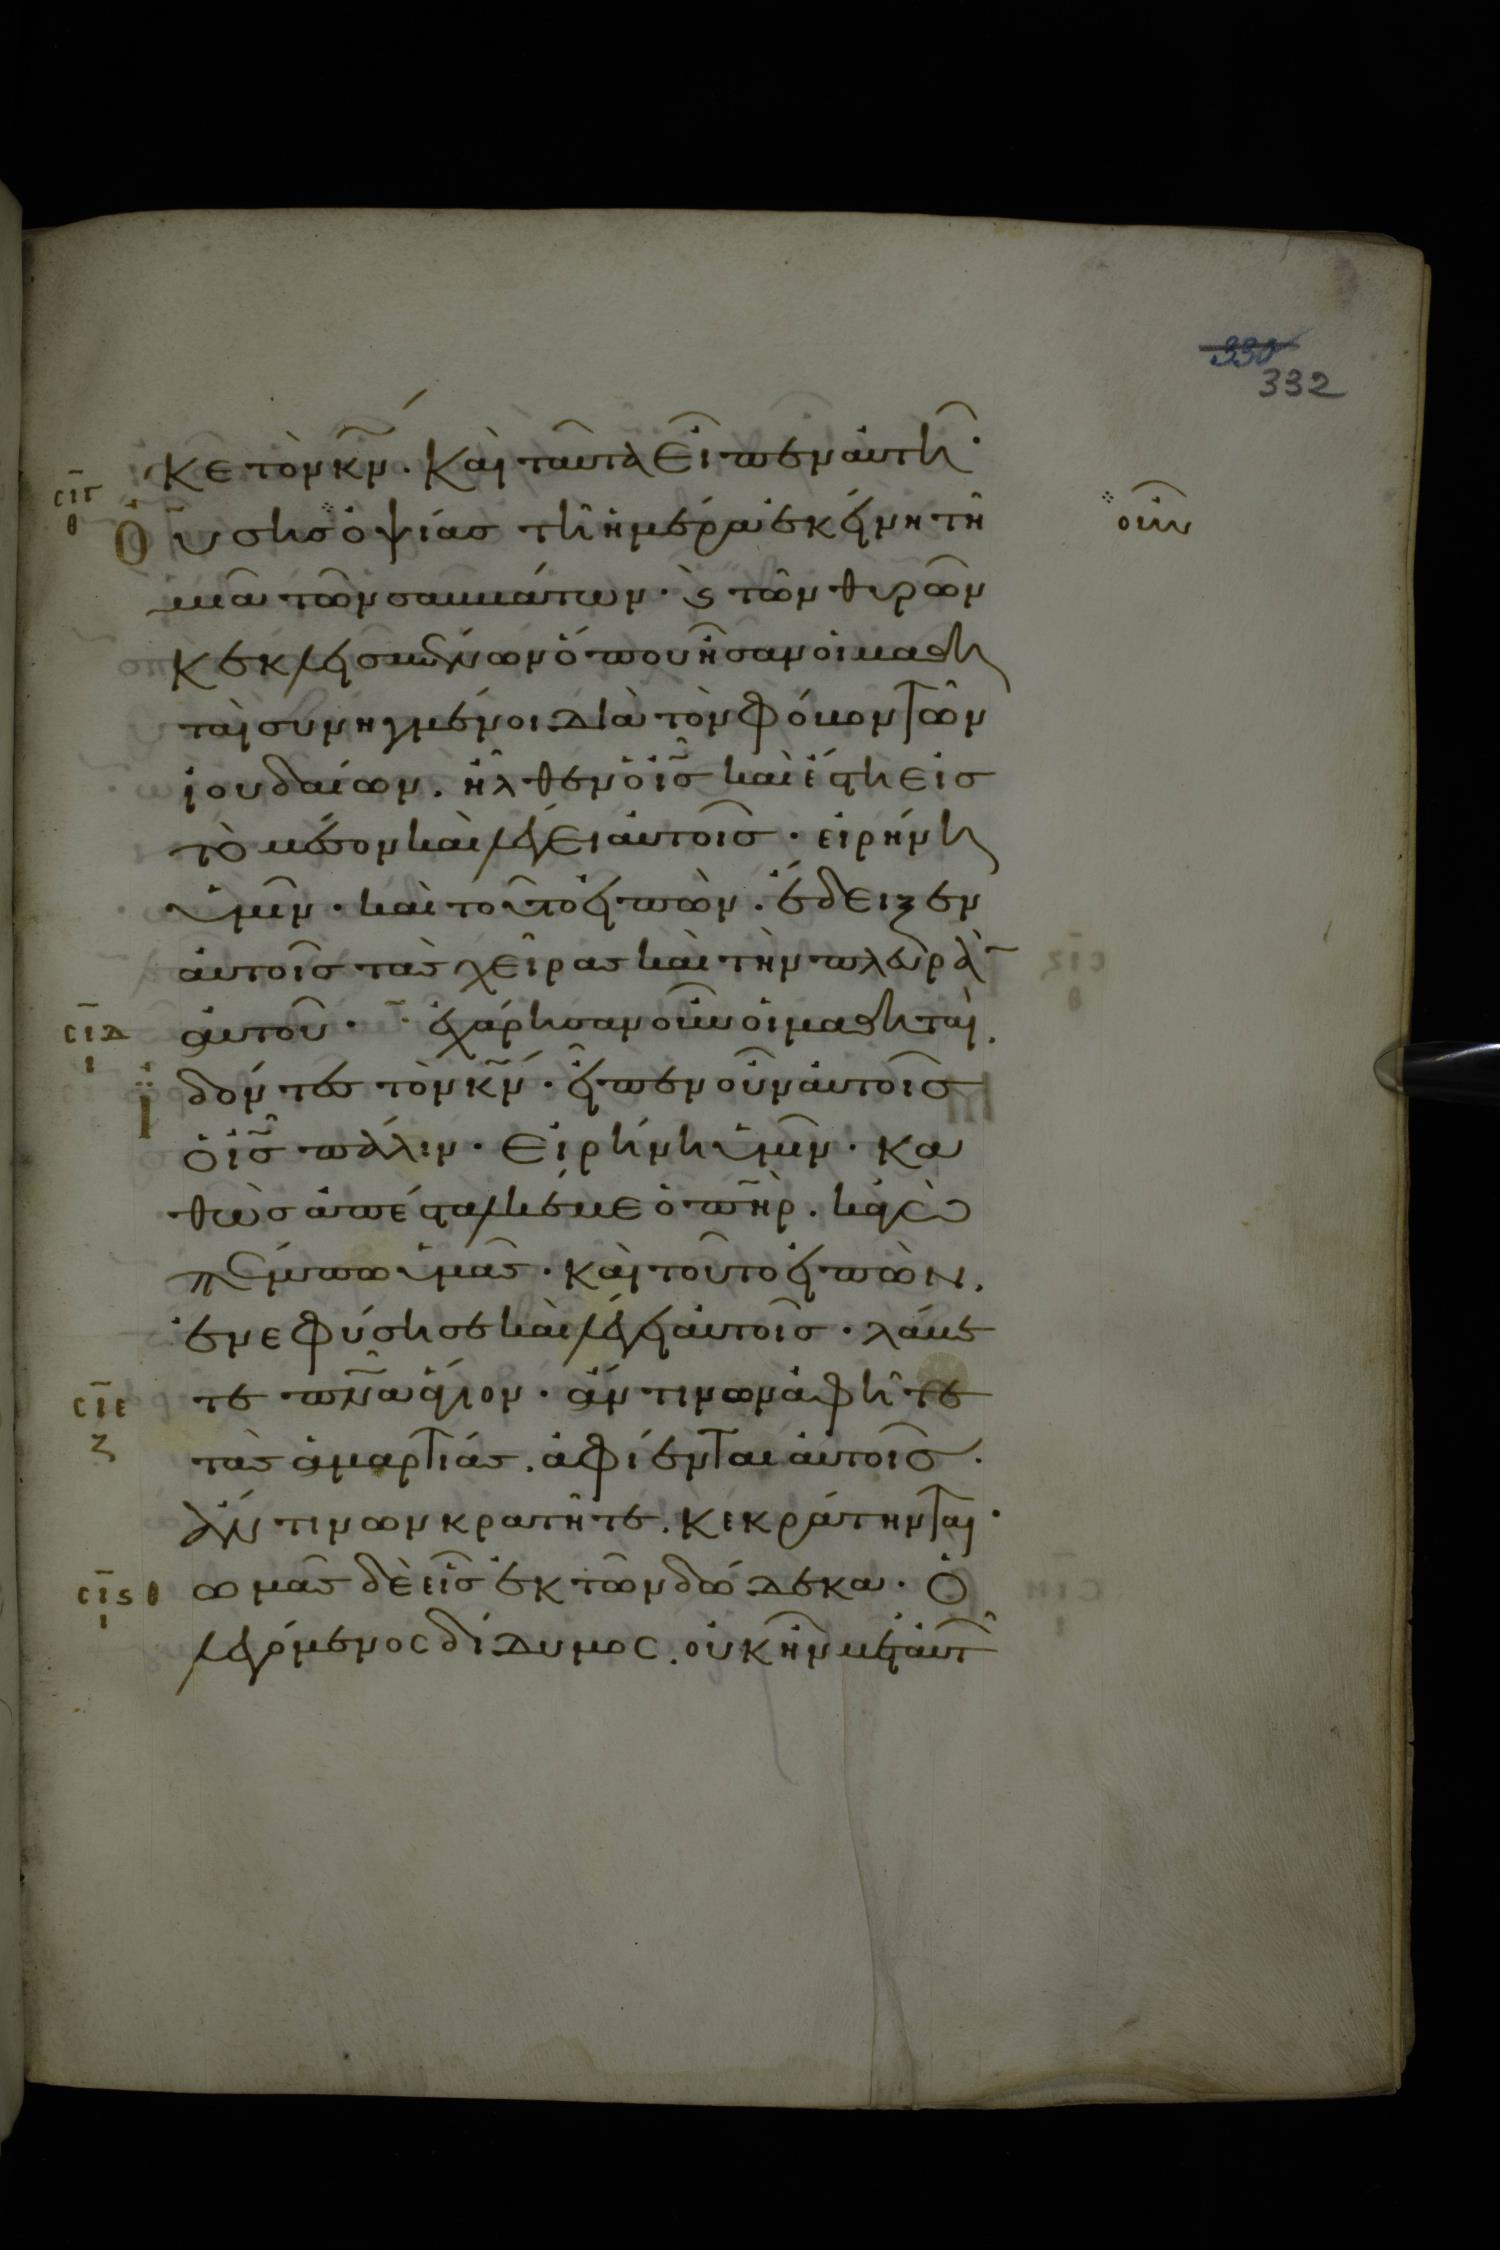 330
332
κε τὸν κ̅ν̅. καὶ ταῦτα εἶπεν αὐτῆ·
σιγ
θ
Οὔσης ὀψίας τῆ ἡμέρα ἐκείνη τῆ
οὖν
μιᾶ τῶν σαββάτων. ϗ τῶν θυρῶν
κεκλεισμένων ὅπου ἦσαν οἱ μαθη
ταὶ συνηγμένοι διὰ τὸν φόβον τῶν
ἰουδαίων. ἦλθεν ὁ ι̅σ̅ καὶ ἔστη εἰς
τὸ μέσον καὶ λέγει αὐτοῖς· εἰρήνη
ὑμῖν· καὶ τοῦτο εἰπὼν. ἔδειξεν
αὐτοῖς τὰς χεῖρας καὶ τὴν πλευρὰ̅
σιδ
ι
αὐτοῦ· ἐχάρησαν οὖν οἱ μαθηταὶ.
ἰδόντες τὸν κ̅ν̅· εἶπεν οὖν αὐτοῖς
ὁ ι̅σ̅ πάλιν· εἰρήνη ὑμῖν· κα
θὼς ἀπέσταλκέ με ὁ π̅η̅ρ̅. κἀγὼ
πέμπω ὑμᾶς· καὶ τοῦτο εἰπὼν.
ἐνεφύσησε καὶ λέγει αὐτοῖς· λάβε
τε π̅ν̅α̅ ἅγιον· ἄν τινων ἀφῆτε
σιε
ζ
τὰς ἁμαρτίας. ἀφίενται αὐτοῖς.
ἄν τινων κρατῆτε. κεκράτηνται·
σιϛ
ι
θωμᾶς δὲ εἷς ἐκ τῶν δώδεκα· ὁ
λεγόμενος δίδυμος. οὐκ ἦν μετ' αὐτῶ